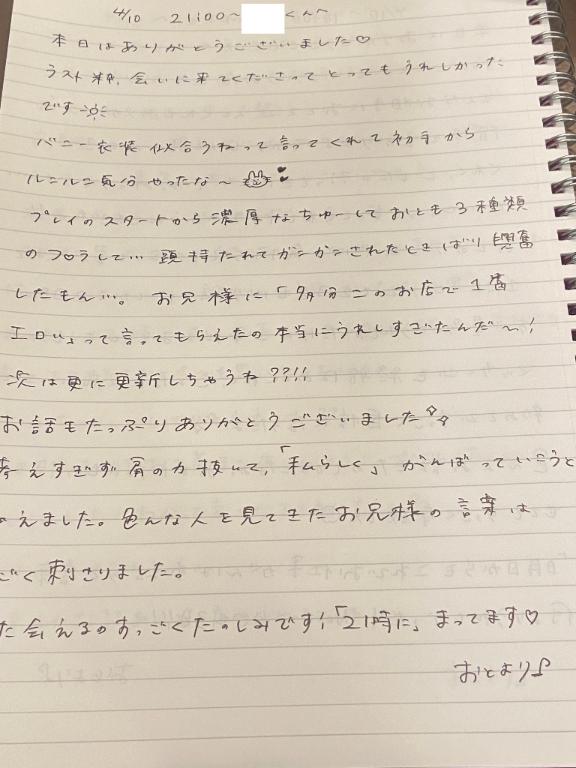 4/10 21:00〜 くんへ
本日はありがとうございました♡
ラスト枠、会いに来てくださってとってもうれしかった
です
バニー衣装似合うねって言ってくれて初手から
ルンルン気分やったな〜
プレイのスタートから濃厚なちゅーしておとも3種類
のフ○ラして… 頭持たれてガンガンされたときばり興奮
したもん…。お兄様に「9月分このお店で1番
エロい」って言ってもらえたの本当にうれしすぎたんだ〜!
次は更に更新しちゃうね??!!
お話もたっぷりありがとうございました
考えすぎず肩の力抜いて、「私らしく」がんばっていこうと
えました。色んな人を見てきたお兄様の言葉は
ごく刺さりました。
た会えるのすっごくたのしみです!「21時に」まってます♡
おとより♪